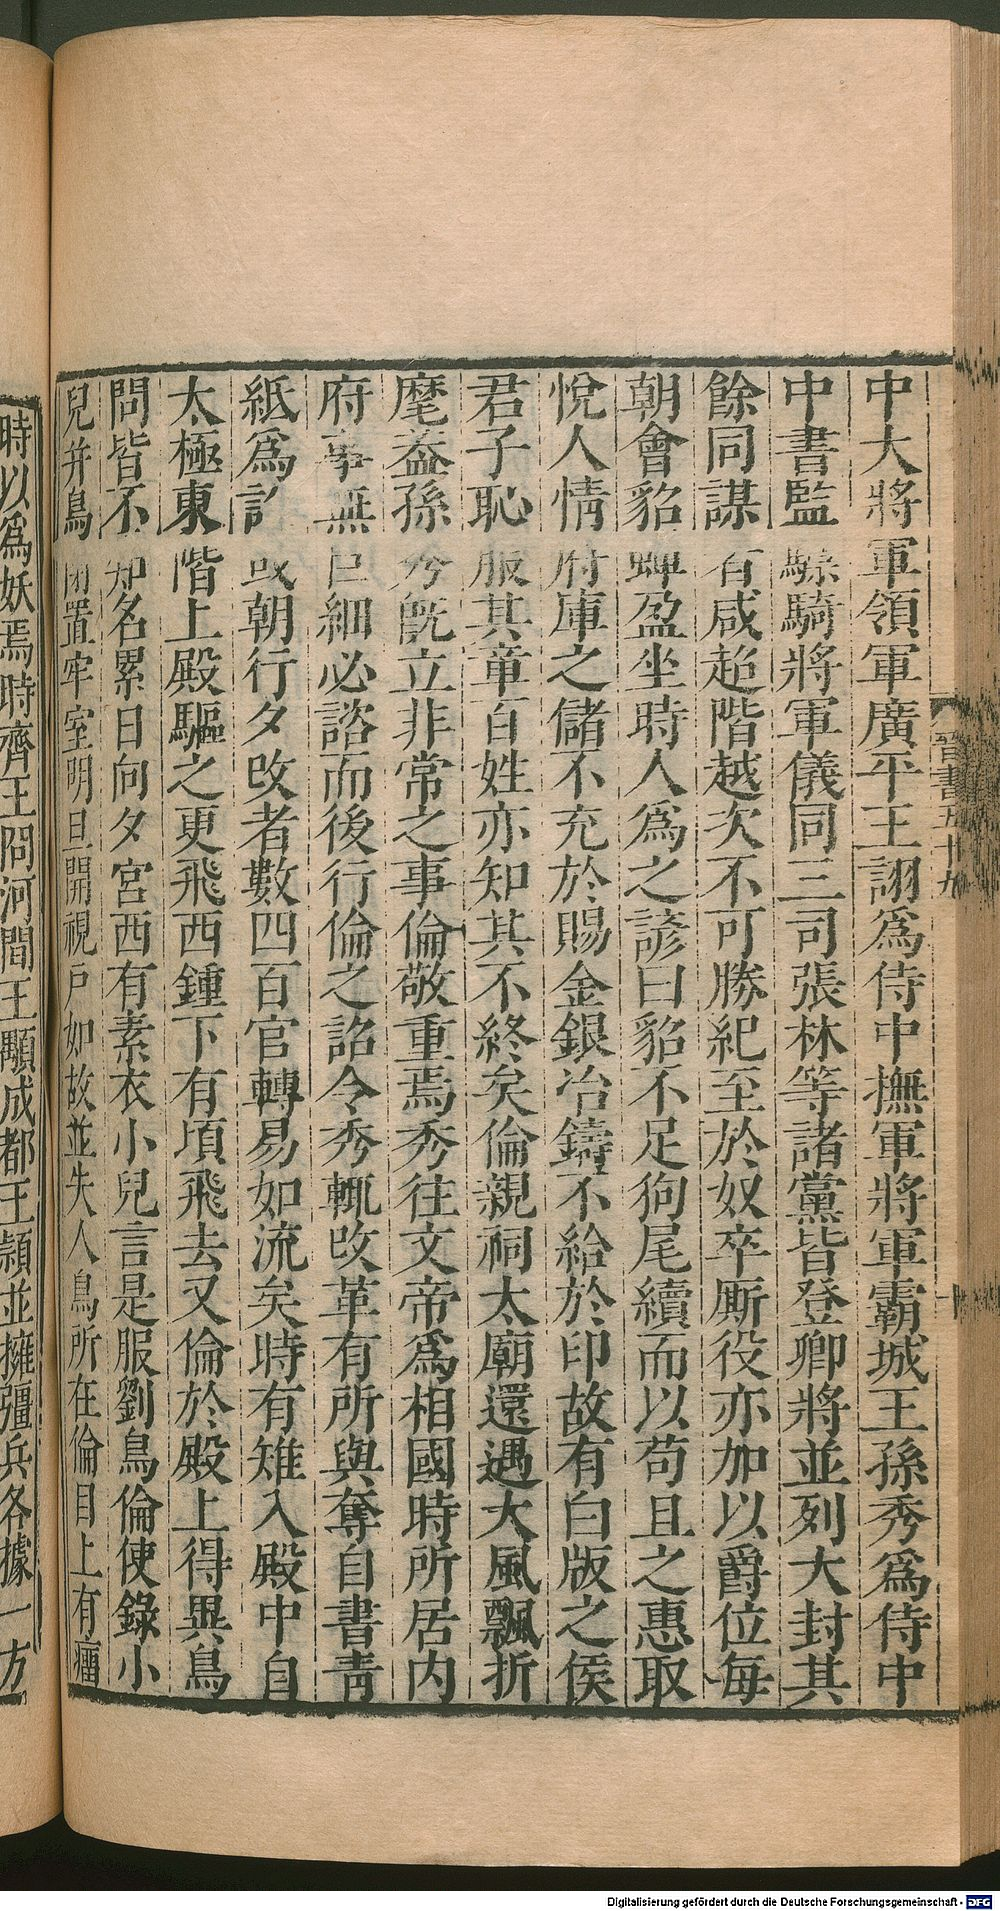 晉書五十九
中大將軍領軍廣平王詡爲侍中撫軍將軍霸城王孫秀爲侍中
中書監驃騎將軍儀同三司張林等諸黨皆登卿將並列大封其
餘同謀者咸超階越次不可勝紀至於奴卒厮役亦加以爵位每
朝會貂蟬盈坐時人爲之諺曰貂不足狗尾續而以苟且之惠取
悅人情府庫之儲不充於賜金銀冶鑄不給於印故有白版之侯
君子恥服其章百姓亦知其不終矣倫親祠太廟還遇大風飄折
麾蓋孫秀旣立非常之事倫敬重焉秀往文帝爲相國時所居内
府事無巨細必諮而後行倫之詔令秀輒改革有所與奪自書靑
紙爲詔或朝行夕改者數四百官轉易如流矣時有雉入殿中自
太極東階上殿驅之更飛西鍾下有頃飛去又倫於殿上得異鳥
問皆不知名累日向夕宮西有素衣小兒言是服劉鳥倫使錄小
兒并鳥閉置牢室明旦開視戸如故並失人鳥所在倫目上有瘤
時以爲妖焉時齊王冏河間王顒成都王潁並擁彊兵各據一方
Digitalisierung gefördert durch die Deutsche Forschungsgemeinschaft - DFG